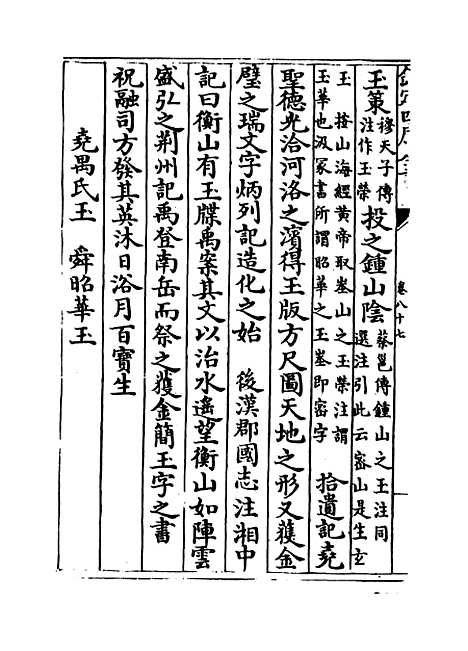 玉䇿穆天子傳注作玉榮投之鍾山陰蔡邕傳鍾山之玉注同選注引此云密山是生玄
玉按山海經黄帝取峚山之玉榮注謂玉華也汲冢書所謂昭華之玉峚即密字 拾遺記堯
聖徳光洽河洛之濱得玉版方尺圖天地之形又獲金
璧之瑞文字炳列記造化之始 後漢郡國志注湘中
記曰衡山有玉牒禹案其文以治水遙望衡山如陣雲
盛弘之荆州記禹登南岳而祭之獲金簡玉字之書
祝融司方發其英沐日浴月百寳生
堯禺氏玉 舜昭華玉
卷八十七